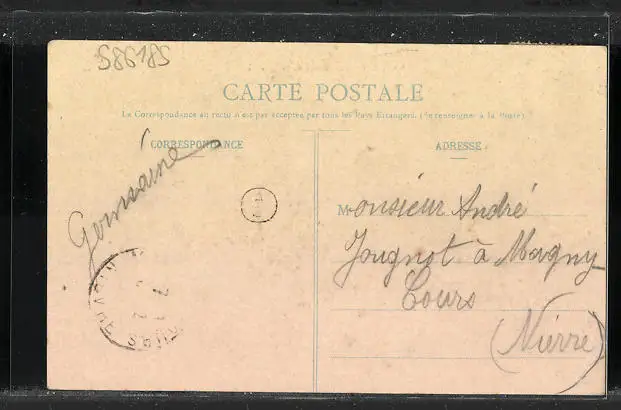 586185
CARTE POSTALE
La Correspondance au recto n'est pas acceptée par tous les Pays Etrangers. (Se renseigner à la Poste)
CORRESPONDANCE
ADRESSE
Monsieur André
Jougnot à Magny
Cours
(Nièvre)